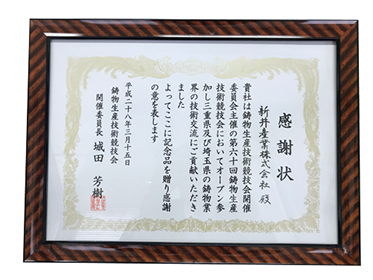 感謝状
新井産業株式会社 殿
貴社は鋳物生産技術競技会開催
委員会主催の第六十回鋳物生産
技術競技会においてオープン参
加し三重県及び埼玉県の鋳物業
界の技術交流にご貢献いただき
ました
よってここに記念品を贈り感謝
の意を表します
平成二十八年三月十五日
鋳物生産技術競技会
開催委員長 城田 芳樹